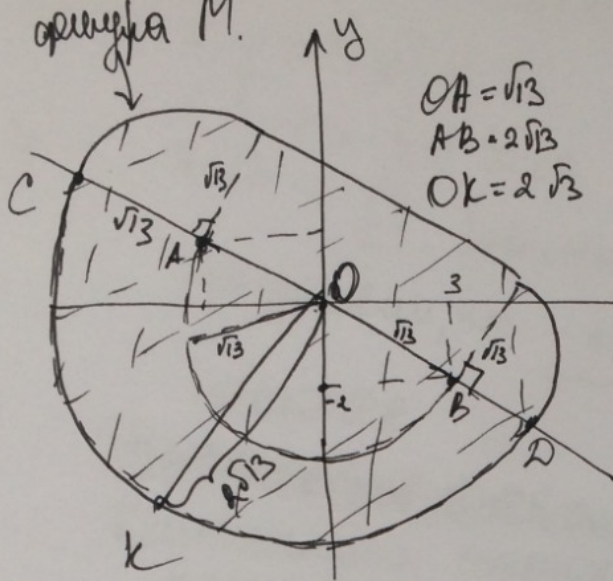 фигура M.
y
OA = √13
AB = 2√13
OK = 2√3
C
√13
√13
A
O
3
√13
√13
√13
-2
B
D
2√13
K